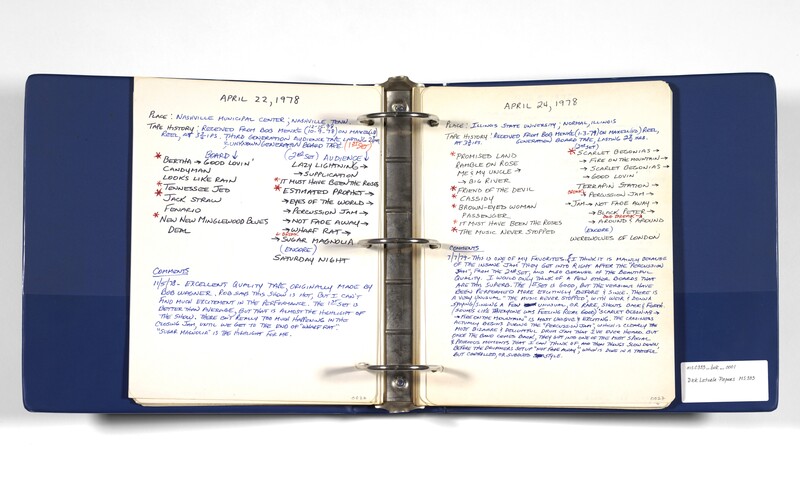 APRIL 22, 1978
PLACE: NASHVILLE MUNICIPAL CENTER; NASHVILLE TENN.
TAPE HISTORY: RECEIVED FROM BOB MENKE (10-9-78) ON MAXELL
REEL, AT 3¾ IPS. THIRD GENERATION AUDIENCE TAPE, LASTING
& UNKNOWN GENERATION BOARD TAPE (1ST SET)
BOARD ↓
* BERTHA → GOOD LOVIN'
CANDYMAN
LOOKS LIKE RAIN
* TENNESSEE JED
* JACK STRAW
PEGGY-O
* NEW NEW MINGLEWOOD BLUES
DEAL
(2ND SET) AUDIENCE ↓
LAZY LIGHTNING →
→ SUPPLICATION
* IT MUST HAVE BEEN THE ROSES
* ESTIMATED PROPHET →
→ EYES OF THE WORLD →
→ PERCUSSION JAM →
→ NOT FADE AWAY →
→ WHARF RAT →
→ SUGAR MAGNOLIA
(ENCORE)
SATURDAY NIGHT
COMMENTS
11/5/78 - EXCELLENT QUALITY TAPE, ORIGINALLY MADE BY
BOB WAGNER. ROB SAID THIS SHOW IS HOT, BUT I CAN'T
FIND MUCH EXCITEMENT IN THE PERFORMANCE. THE 1ST SET IS
BETTER THAN AVERAGE, BUT THAT IS ALMOST THE HIGHLIGHT OF
THE SHOW. THERE ISN'T REALLY TOO MUCH HAPPENING IN THE
CLOSING JAM, UNTIL WE GET TO THE END OF "WHARF RAT".
"SUGAR MAGNOLIA" IS THE HIGHLIGHT FOR ME.
APRIL 24, 1978
PLACE: ILLINOIS STATE UNIVERSITY; NORMAL, ILLINOIS
TAPE HISTORY: RECEIVED FROM BOB MENKE (1-3-79) ON MAXELL REEL,
AT 3¾ IPS. GENERATION BOARD TAPE, LASTING 2¾ HRS.
* PROMISED LAND
RAMBLE ON ROSE
ME & MY UNCLE →
→ BIG RIVER
* FRIEND OF THE DEVIL
* CASSIDY
* BROWN-EYED WOMAN
PASSENGER
* IT MUST HAVE BEEN THE ROSES
* THE MUSIC NEVER STOPPED
(2ND SET)
* SCARLET BEGONIAS →
→ FIRE ON THE MOUNTAIN →
→ SCARLET BEGONIAS →
→ GOOD LOVIN'
TERRAPIN STATION →
→ PERCUSSION JAM →
→ JAM → NOT FADE AWAY →
→ BLACK PETER →
→ AROUND & AROUND
(ENCORE)
WEREWOLVES OF LONDON
COMMENTS
THIS IS ONE OF MY FAVORITES. I THINK IT IS MAINLY BECAUSE
OF THE INSANE JAM THEY GET INTO RIGHT AFTER THE "PERCUSSION
JAM", FROM THE 2ND SET, AND ALSO BECAUSE OF THE BEAUTIFUL
QUALITY. I WOULD ONLY THINK OF A FEW OTHER BOARDS THAT
ARE THIS SUPERB. THE 1ST SET IS GOOD, BUT THE VERSIONS HAVE
BEEN PERFORMED MORE EXCITINGLY BEFORE & SINCE. THERE IS
A VERY UNUSUAL "THE MUSIC NEVER STOPPED", WITH WEIR & DONNA
SINGING A FEW UNUSUAL, OR RARE, SHOUTS BACK & FORTH.
(SEEMS LIKE EVERYONE WAS FEELING REAL GOOD) "SCARLET BEGONIAS →
→ FIRE ON THE MOUNTAIN" IS MOST UNIQUE & EXCITING. THE
ACTIVITY BEGINS DURING THE "PERCUSSION JAM", WHICH IS CLEARLY THE
MOST BIZARRE & DELIGHTFUL DRUM JAM THAT I'VE EVER HEARD. BUT
ONCE THE BAND COMES BACK, THEY GET INTO ONE OF THE MOST SPECIAL
& FEROCIOUS MOMENTS THAT I CAN THINK OF, AND THEN THINGS SLOW DOWN,
BEFORE THE DRUMMERS SET UP "NOT FADE AWAY", WHICH IS DONE IN A
BUT CONTROLLED, OR SUBDUED STYLE.
Dick Latvala Papers MS 333